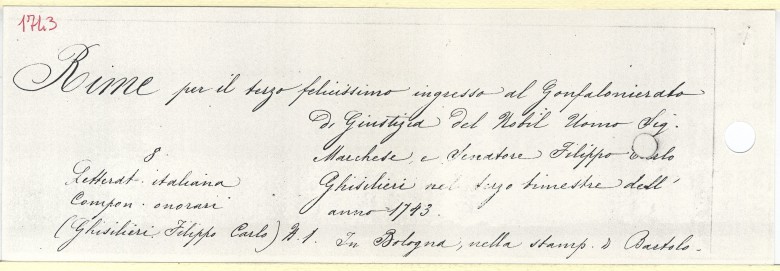 1743
Rime per il terzo felicissimo ingresso al Gonfalonierato
Di Giustizia del Nobil Uomo Sig.
Marchese, e Senatore Filippo Carlo
Ghisilieri nel terzo bimestre dell'
anno 1743.
8
Letterat. italiana
Compon. onorari
(Ghisilieri, Filippo Carlo) N. 1. In Bologna, nella stamp. di Bartolo-